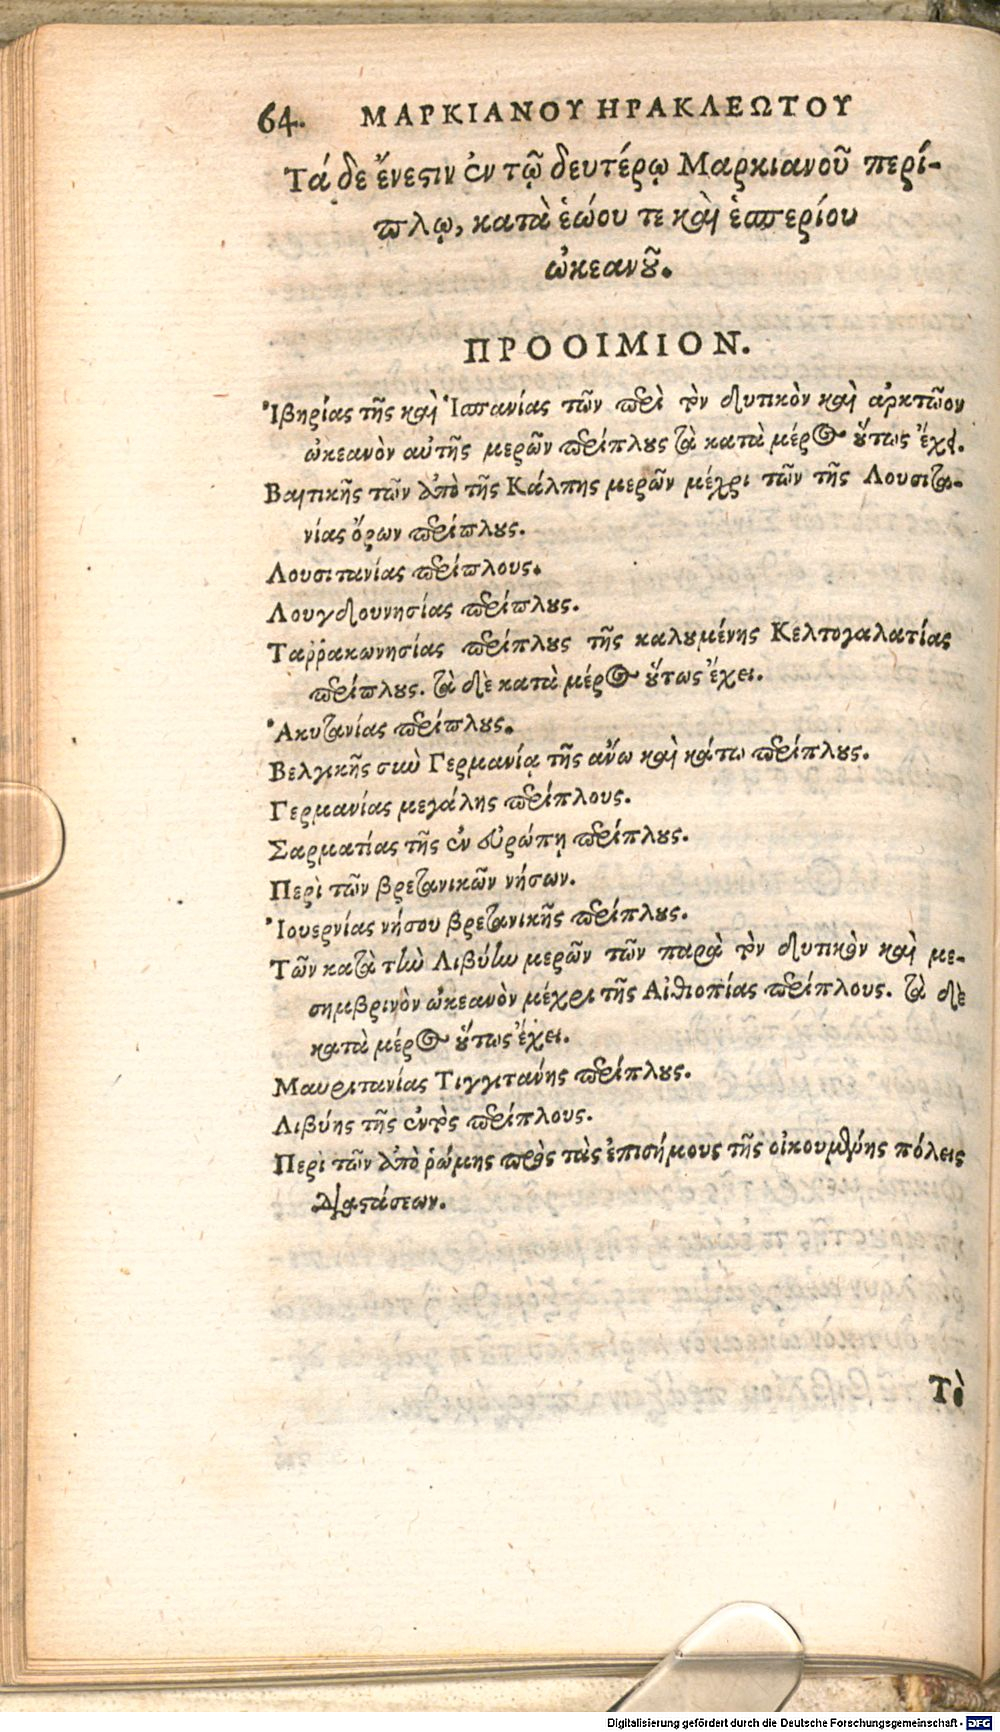 64. ΜΑΡΚΙΑΝΟΥ ΗΡΑΚΛΕΩΤΟΥ
Τά δε ἔνεστιν ἐν τῷ δευτέρῳ Μαρκιανοῦ περί-
πλῳ, κατὰ ἑῴου τε καὶ ἑσπερίου
ὠκεανοῦ.
ΠΡΟΟΙΜΙΟΝ.
Ἰβηρίας τῆς καὶ Ἱσπανίας τῶν περὶ τὸν δυτικὸν καὶ ἀρκτῶον
ὠκεανὸν αὐτῆς μερῶν περίπλους τὰ κατὰ μέρος οὕτως ἔχει.
Βαιτικῆς τῶν ἀπὸ τῆς Κάλπης μερῶν μέχρι τῶν τῆς Λουσιτα-
νίας ὅρων περίπλους.
Λουσιτανίας περίπλους.
Λουγδουνησίας περίπλους.
Ταῤῥακωνησίας περίπλους τῆς καλουμένης Κελτογαλατίας
περίπλους. τὰ δὲ κατὰ μέρος οὕτως ἔχει.
Ἀκυτανίας περίπλους.
Βελγικῆς σὺν Γερμανίᾳ τῆς ἄνω καὶ κάτω περίπλους.
Γερμανίας μεγάλης περίπλους.
Σαρματίας τῆς ἐν εὐρώπῃ περίπλους.
Περὶ τῶν βρετανικῶν νήσων.
Ἰουερνίας νήσου βρετανικῆς περίπλους.
Τῶν κατὰ τὴν Λιβύην μερῶν τῶν παρὰ τὸν δυτικὸν καὶ με-
σημβρινὸν ὠκεανὸν μέχρι τῆς Αἰθιοπίας περίπλους. τὰ δὲ
κατὰ μέρος οὕτως ἔχει.
Μαυριτανίας Τιγγιτανῆς περίπλους.
Λιβύης τῆς ἐντὸς περίπλους.
Περὶ τῶν ἀπὸ ῥώμης πρὸς τὰς ἐπισήμους τῆς οἰκουμένης πόλεις
διαστάσεων.
Τὸ
Digitalisierung gefördert durch die Deutsche Forschungsgemeinschaft - DFG